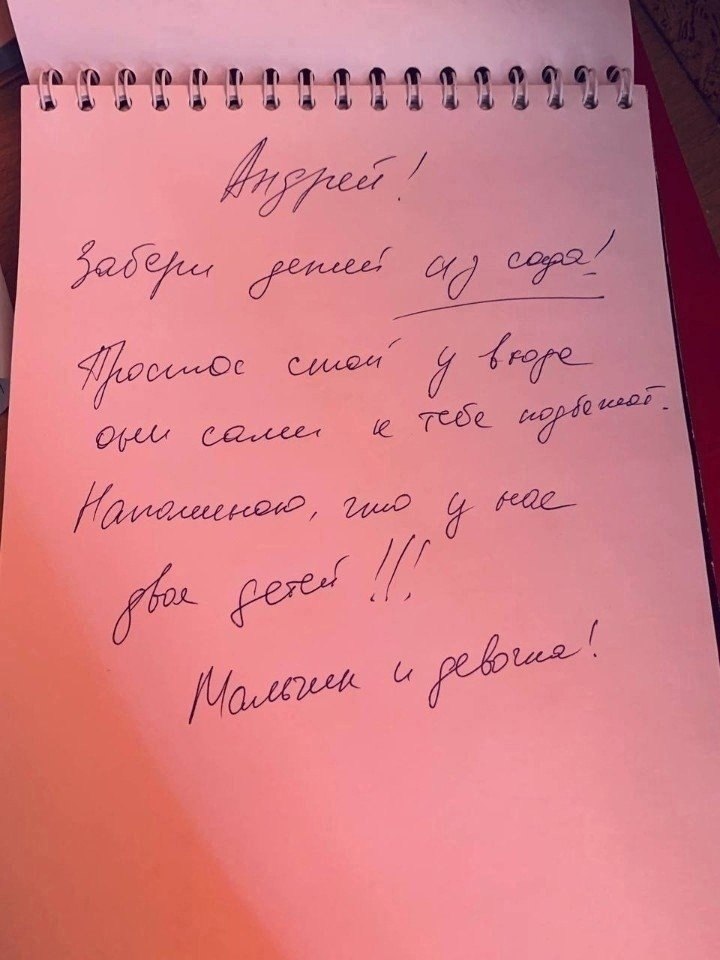 Андрей!
Забери детей из сада!
Просто стой у входа
они сами к тебе подбегают.
Напоминаю, что у нас
двое детей!!!
Мальчик и девочка!